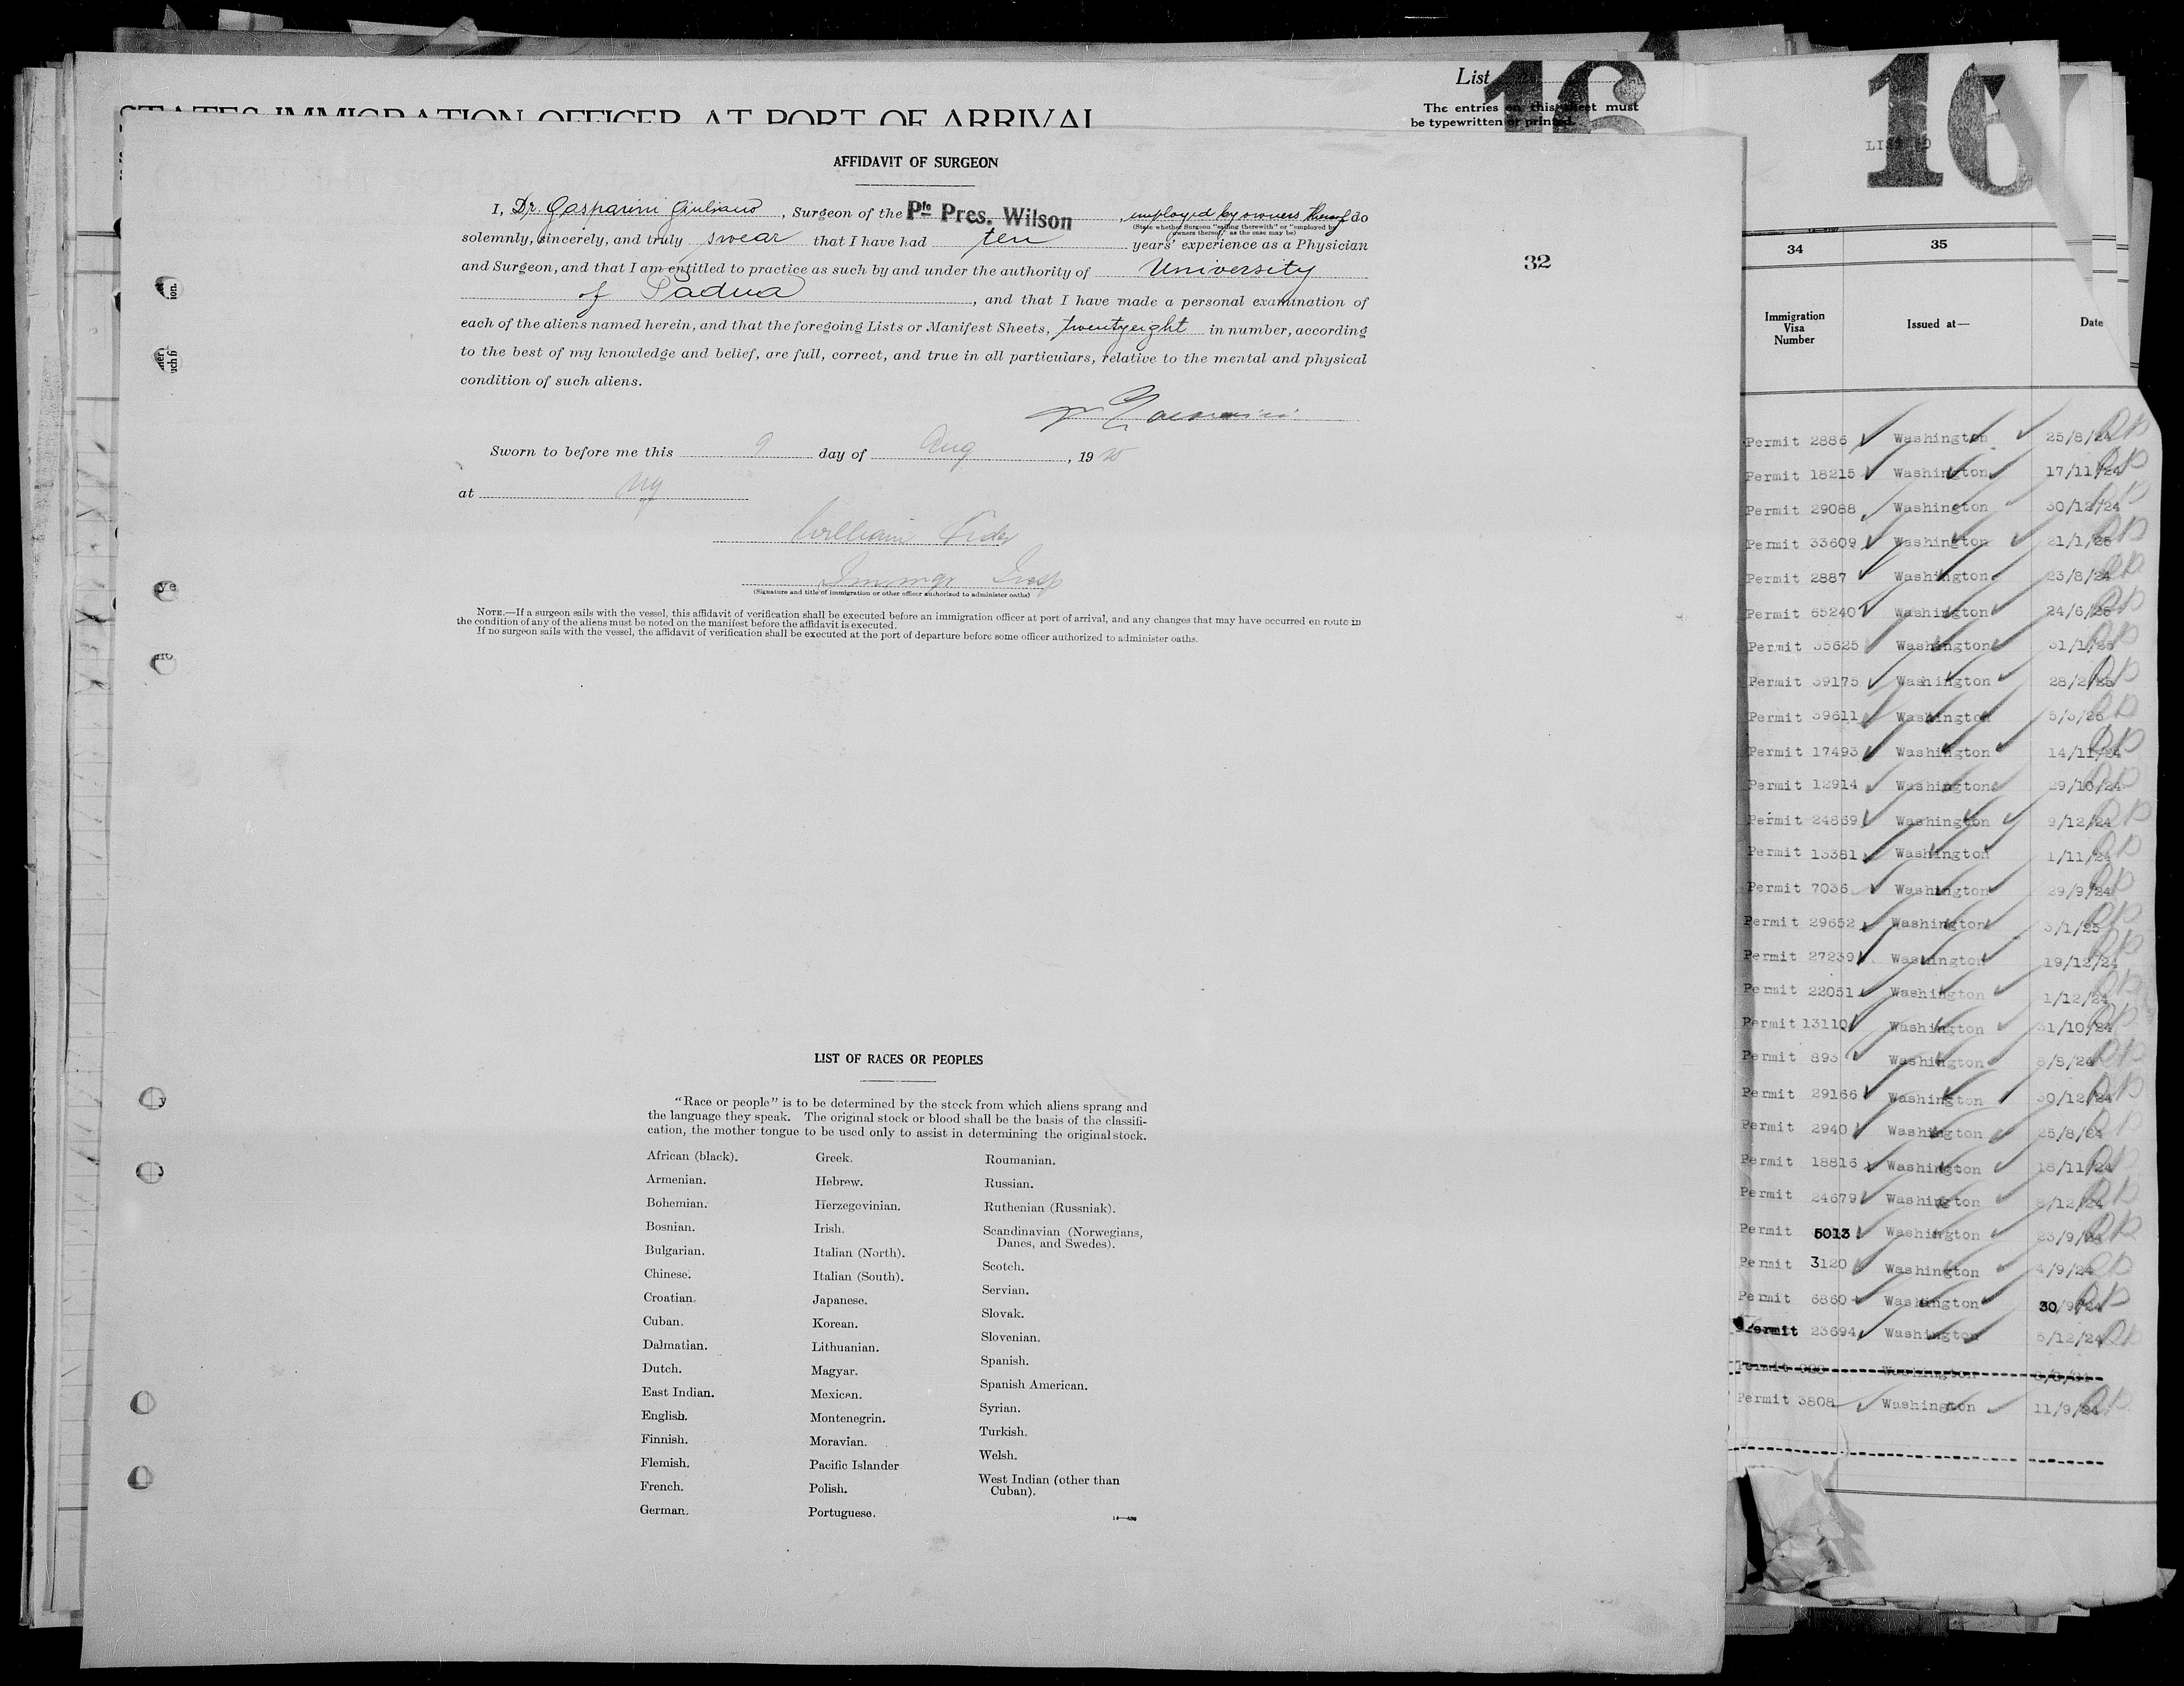 STATES IMMIGRATION OFFICER AT PORT OF ARRIVAL
List
16
The entries on this sheet must
be typewritten or printed.
16
LIST
AFFIDAVIT OF SURGEON
I, Dr. Gasparini Giuliano, Surgeon of the Pfo Pres. Wilson, employed by owners thereof do
(State whether Surgeon "sailing therewith" or "employed by
owners thereof," as the case may be)
solemnly, sincerely, and truly swear that I have had ten years' experience as a Physician
and Surgeon, and that I am entitled to practice as such by and under the authority of University
of Padua, and that I have made a personal examination of
each of the aliens named herein, and that the foregoing Lists or Manifest Sheets, twentyeight in number, according
to the best of my knowledge and belief, are full, correct, and true in all particulars, relative to the mental and physical
condition of such aliens.
Dr Gasparini
Sworn to before me this 9 day of Aug, 19
at NY
William
Immgr Insp
(Signature and title of immigration or other officer authorized to administer oaths)
NOTE.—If a surgeon sails with the vessel, this affidavit of verification shall be executed before an immigration officer at port of arrival, and any changes that may have occurred en route in
the condition of any of the aliens must be noted on the manifest before the affidavit is executed.
If no surgeon sails with the vessel, the affidavit of verification shall be executed at the port of departure before some officer authorized to administer oaths.
32
LIST OF RACES OR PEOPLES
"Race or people" is to be determined by the stock from which aliens sprang and
the language they speak. The original stock or blood shall be the basis of the classifi-
cation, the mother tongue to be used only to assist in determining the original stock.
African (black).
Armenian.
Bohemian.
Bosnian.
Bulgarian.
Chinese.
Croatian.
Cuban.
Dalmatian.
Dutch.
East Indian.
English.
Finnish.
Flemish.
French.
German.
Greek.
Hebrew.
Herzegovinian.
Irish.
Italian (North).
Italian (South).
Japanese.
Korean.
Lithuanian.
Magyar.
Mexican.
Montenegrin.
Moravian.
Pacific Islander
Polish.
Portuguese.
Roumanian.
Russian.
Ruthenian (Russniak).
Scandinavian (Norwegians,
Danes, and Swedes).
Scotch.
Servian.
Slovak.
Slovenian.
Spanish.
Spanish American.
Syrian.
Turkish.
Welsh.
West Indian (other than
Cuban).
34 35
Immigration
Visa
Number
Issued at—
Date
Permit 2886 Washington 25/8/24
Permit 18215 Washington 17/11/24
Permit 29088 Washington 30/12/24
Permit 33609 Washington 21/1/25
Permit 2887 Washington 23/8/24
Permit 65240 Washington 24/6/25
Permit 35625 Washington 31/1/25
Permit 39175 Washington 28/2/25
Permit 39611 Washington 5/3/25
Permit 17493 Washington 14/11/24
Permit 12914 Washington 29/10/24
Permit 24869 Washington 9/12/24
Permit 13381 Washington 1/11/24
Permit 7036 Washington 29/9/24
Permit 29652 Washington 3/1/25
Permit 27239 Washington 19/12/24
Permit 22051 Washington 1/12/24
Permit 13110 Washington 31/10/24
Permit 893 Washington 8/8/24
Permit 29166 Washington 30/12/24
Permit 2940 Washington 25/8/24
Permit 18816 Washington 18/11/24
Permit 24679 Washington 8/12/24
Permit 5013 Washington 23/9/24
Permit 3120 Washington 4/9/24
Permit 6860 Washington 30/9/24
Permit 23694 Washington 5/12/24
Permit Washington
Permit 3808 Washington 11/9/24